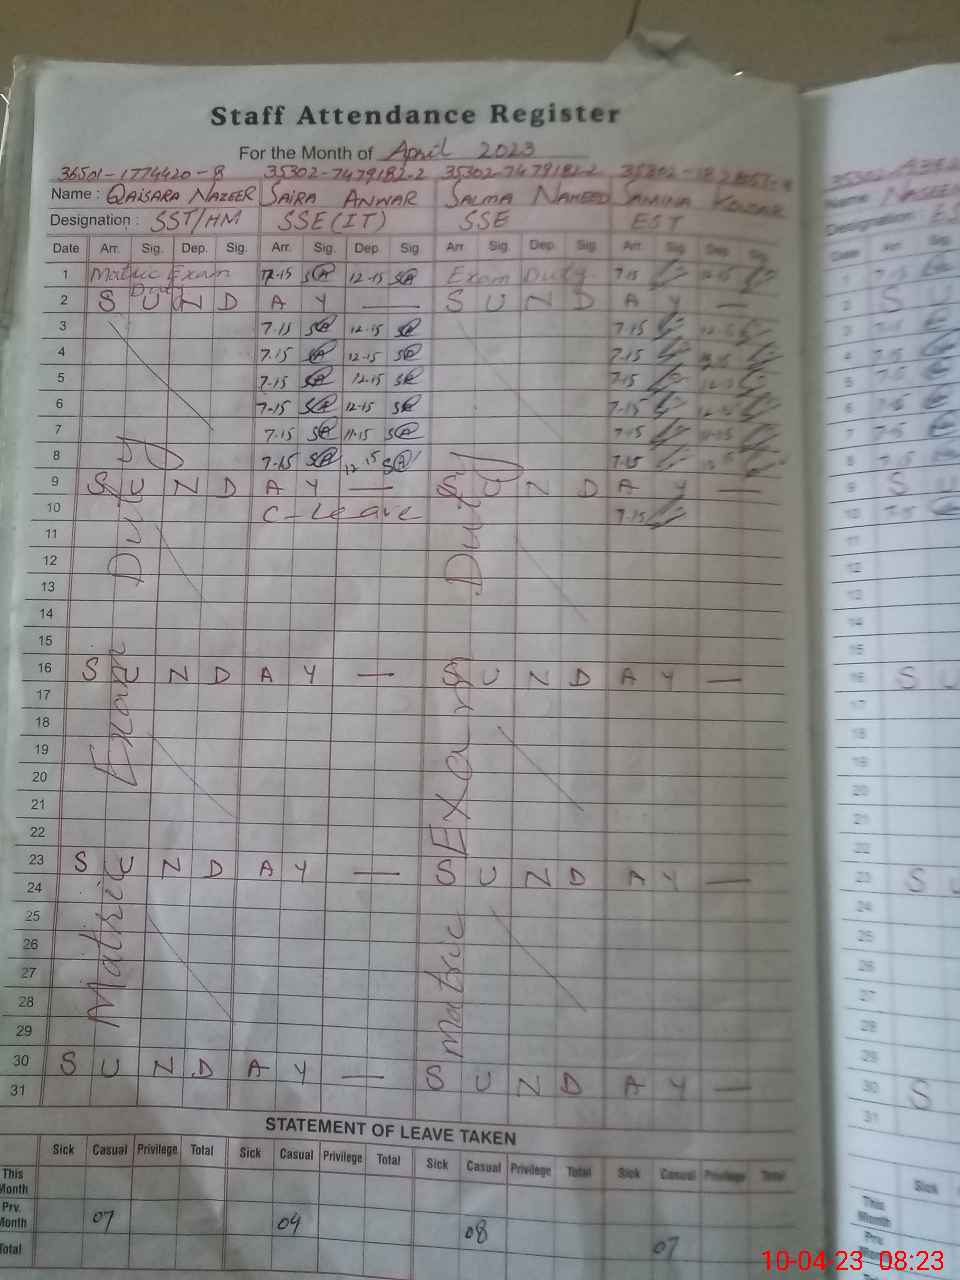 Staff Attendance Register
For the Month of April 2023
36501-1774420-8 35302-7479182-2 35302-7479182-2
Name : QAISARA NAZEER SAIRA ANWAR SALMA NAHEED SAMINA KOUSAR
Designation : SST/HM SSE(IT) SSE EST
Date Arr. Sig. Dep. Sig. Arr. Sig. Dep. Sig Arr Sig. Dep. Sig. Arr Sig Dep. Sig.
1 Matric Exam Duty 12-15 SA 12-15 SA Exam Duty 7-15 12-15
2 S U N D A Y — S U N D A Y —
3 7-15 SA 12-15 SA 7-15 12-15
4 7-15 SA 12-15 SA 7-15 12-15
5 7-15 SA 12-15 SA 7-15 12-15
6 7-15 SA 12-15 SA 7-15 12-15
7 7-15 SA 11-15 SA 7-15 11-15
8 7-15 SA 12-15 SA 7-15
9 S U N D A Y — S U N D A Y —
10 C-Leave 7-15
11
12
13
14
15
16 S U N D A Y — S U N D A Y —
17
18
19
20
21
22
23 S U N D A Y — S U N D A Y —
24
25
26
27
28
29
30 S U N D A Y — S U N D A Y —
31
Matric Exam Duty
Matric Exam Duty
STATEMENT OF LEAVE TAKEN
Sick Casual Privilege Total Sick Casual Privilege Total Sick Casual Privilege Total Sick Casual Privilege Total
This Month
Prv. Month 07 04 08 07
Total
10-04-23 08:23